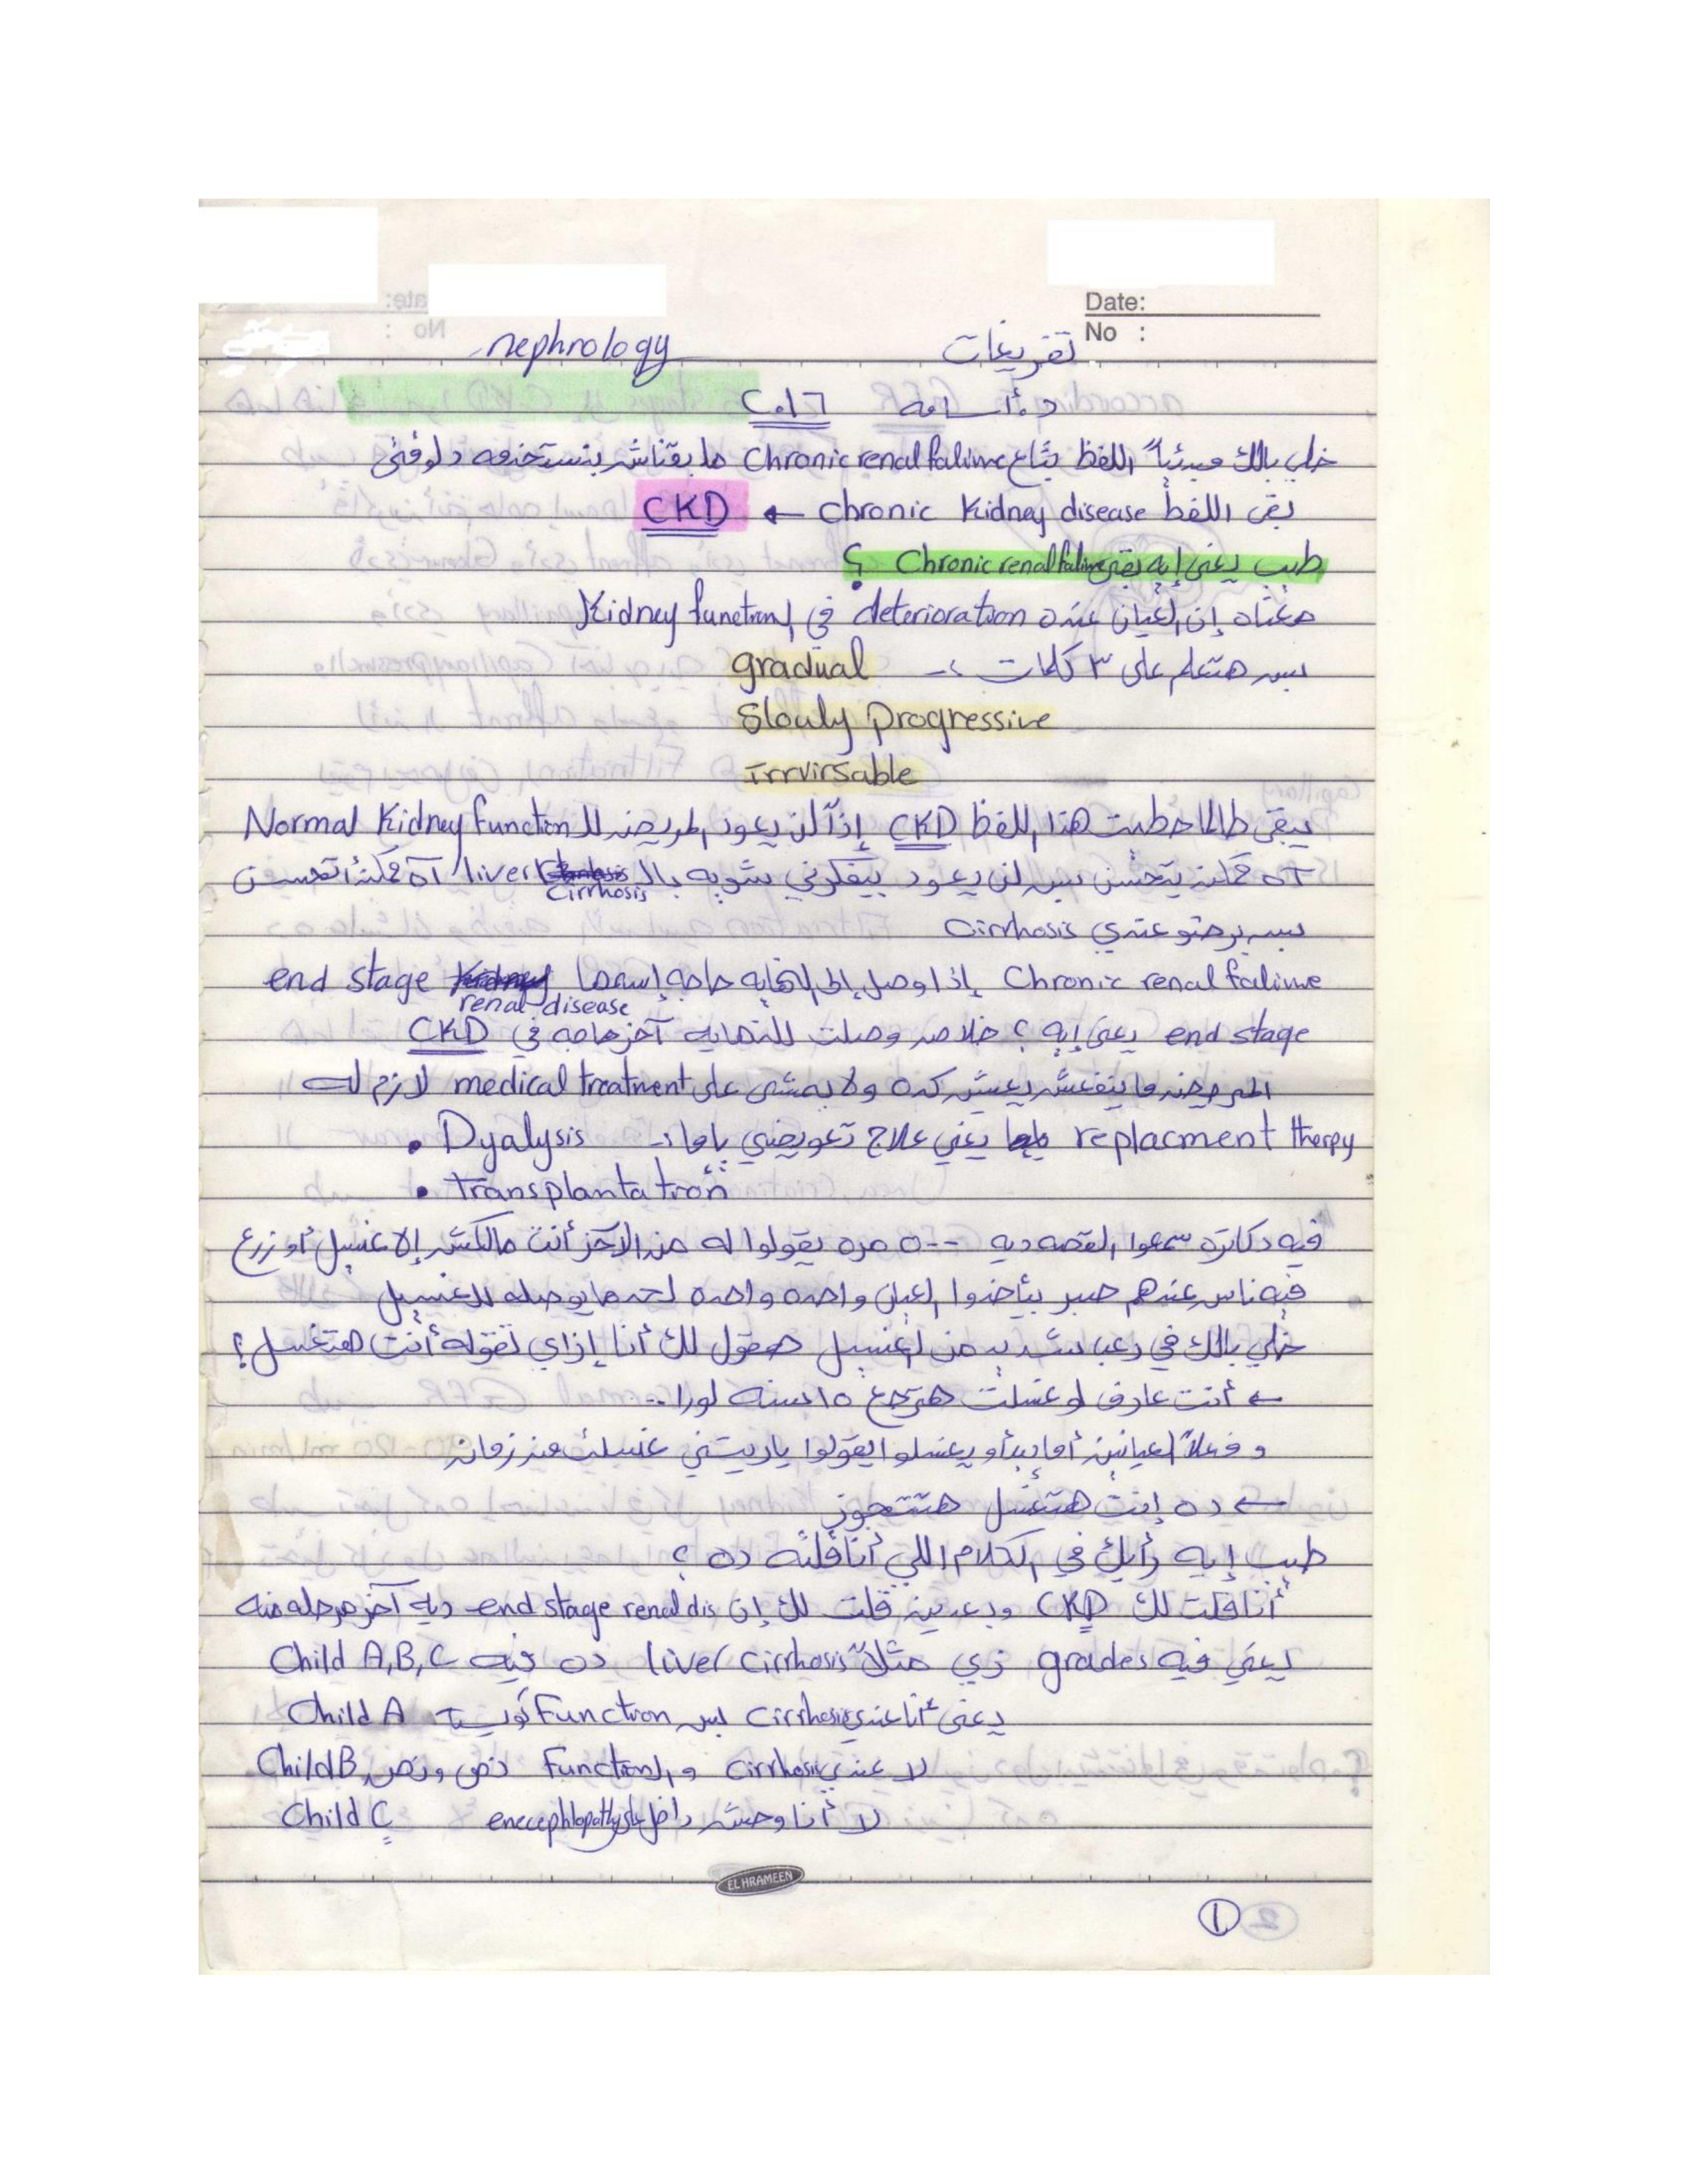 Date:
No :
nephrology تفريغات
د. أسامه ٢٠١٦
خلي بالك مبدئياً اللفظ بتاع Chronic renal faliure ما بقناش بنستخدمه دلوقتى
بقى اللفظ chronic Kidney disease ← CKD
طب يعنى إيه بقى Chronic renal faliure ؟
معناه إن العيان عنده deterioration فى ال Kidney function
بس هتعلم على ٣ كلمات :-
gradual
Slowly Progressive
irrvirsable
يبقى طالما حطيت هذا اللفظ CKD إذاً لن يعود المريض لل Normal Kidney Function
آه ممكن يتحسن بس لن يعود بيفكرني بشويه بال liver Cirrhosis آه ممكن أتحسن
بس برضو عندي Cirrhosis
Chronic renal faliure إذا وصل إلى النهايه حاجه إسمها end stage renal disease
end stage يعنى إيه ؟ خلاص وصلت للنهايه آخر حاجه في CKD
المريض ما ينفعش يعيش كده ولا يمشى على medical treatment لازم له
replacment therpy يعني علاج تعويضي ياما :- • Dyalysis
• Transplantation
فيه دكاترة سمعوا القصه ديه ٥٠٠ مره يقولوا له من الآخر أنت مالكش إلا غسيل أو زرع
فيه ناس عندهم صبر بيأخدوا العيان واحده واحده لحد ما يوصله للغسيل
خلي بالك في رعب شديد من الغسيل هقول لك أنا إزاي تقوله أنت هتغسل ؟
← أنت عارف لو غسلت هترجع ١٥ سنه لورا ..
و فعلاً العيانين أما يبدأو يغسلوا يقولوا ياريتني غسلت من زمان
← ده إنت هتغسل هتتجوز
طب إيه رأيك في الكلام اللي أنا قلته ده ؟
أنا قلت لك CKD وبعدين قلت لك إن end stage renal dis ديه آخر مرحله منه
يعني فيه grades زي مثلاً liver cirrhosis ده فيه Child A,B,C
يعنى أنا عندي Cirrhosis بس Function كويسة Child A
لا عندي cirrhosis و ال Function نص ونص Child B
لا أنا وحش داخل على enecephlopathy Child C
EL HRAMEEN
1